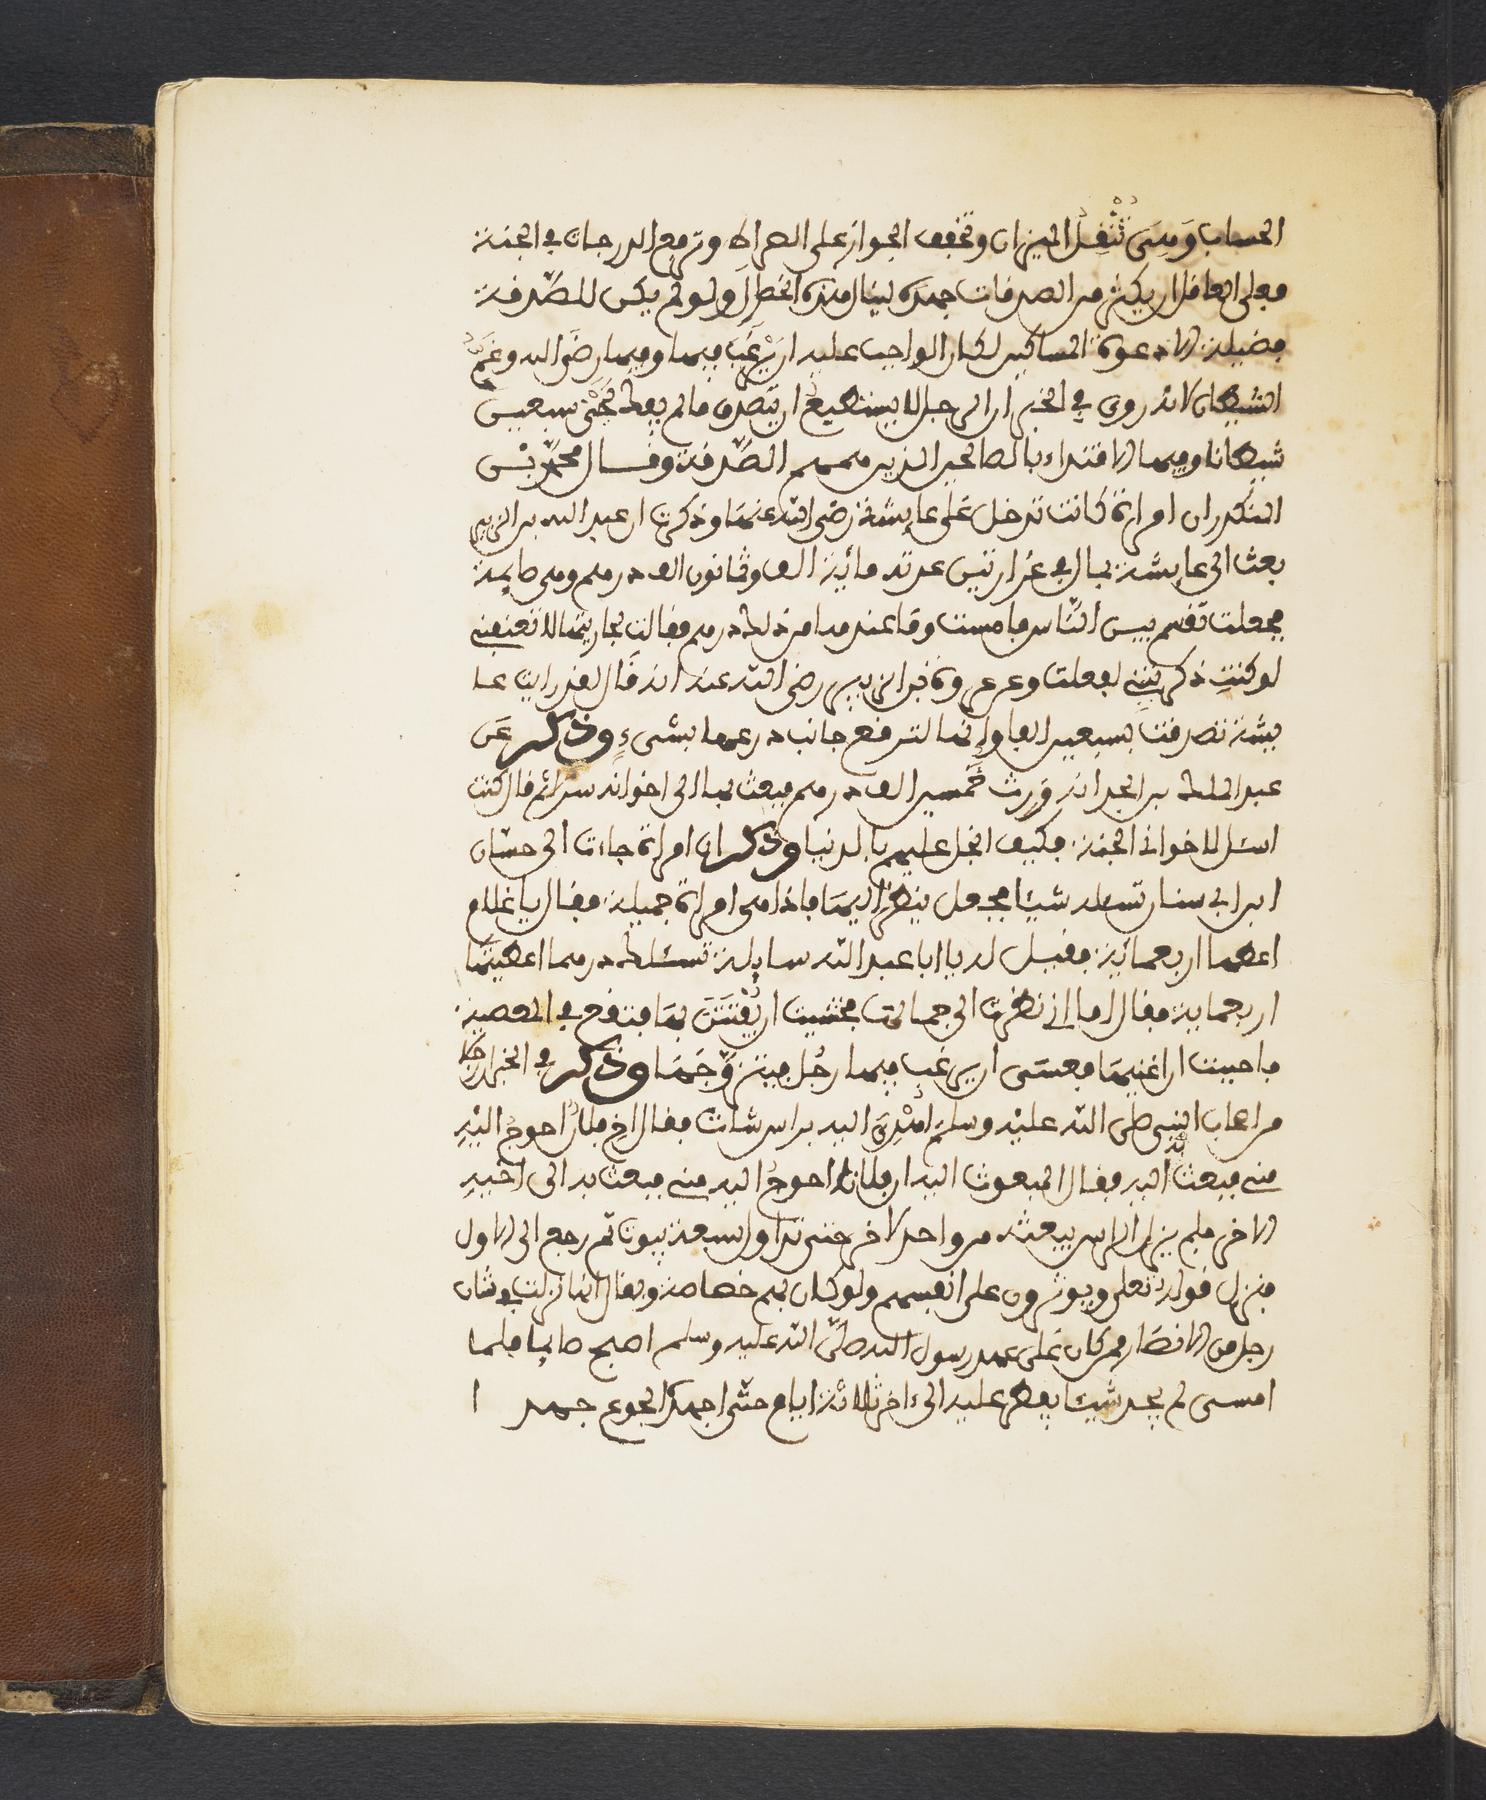 الحساب وَمِنى تُثْقِلُ الميزان وتخفف الجواز على الصراط وترفع الدرجات في الجنة
فعلى العاقل ان يكثر من الصدقات جهده لينال هذه الخطر ولو لم يكن للصّدقة
فضيلة الا دعوة المساكين لكان الواجب عليه ان يَرْغَبَ فيها وفيها رضَى الله وغَمُّ
الشيطان لانه روي في الخبر ان الرجل لا يستطيع ان يتصدق ما لم يفك لحْيَيْ سبعين
شيطانا وفيها الاقتداء بالصالحين الذين هممهم الصّدقة وقال محمّد بْن
المنكدر ان امراة كانت تدخل على عايشة رضى الله عنها وذكرت ان عبد الله بن الزبير
بعث الى عايشة بمال في غرارتين عدته مائية الف وثمانون الف درهم وهى صايمة
فجعلت تقسم بين النّاس فامست وما عندها من ذلك درهم فقالت لجاريتها لا تعنفينى
لو كنتِ ذكرتينى لفعلت وعن عروة بن الزبير رضى الله عنه انه قال لقد رايت عا
يشة تصدقت بسبعين الفا وإنها لترقع جانب درعها بشىءٍ وذكر عَن
عبد الملك بن ابجر انه وَرِث خَمسين الف درهم فبعث بها الى اخوانه سرا ثم قال كنت
اسئل لاخواني الجنة فكيف ابخل عليهم بالدنيا وذكر ان امراة جاءت الى حسّان
ابن ابي سنان تسئله شيئا فجعل ينظر اليها فاذا هى امراة جميلة فقال يا غلام
اعطها اربعمائية فقيل له يا ابا عبد الله سايلة تسئلك درهما اعطيتها
اربعماية فقال لها اني نظرت الى جمالها فخشيت ان يُفْتَتَنَ بها فتقع في المعصية
فاحببت ان اغنيها فعسى ان يرغب فيها رجُل فيتزوّجَها وذكر في الخبر ان رجلا
من اصحاب النبى صلى الله عليه وسلم اُهْدِىَ اليه براس شاة فقال اخى فلانٌ احوجُ اليْهِ
منى فبعث به اليه فقال المبعوث اليه ان فلانا احوجُ اليه منى فبعث به الى اخيهِ
الاخر فلم يزل الراس يبعثه من واحد لاخر حتى تداول سبعة بيوت ثم رجع الى الاول
فنزل قوله تعلى ويوثرون على انفسهم ولو كان بهم خصاصة ويقال انها نزلت في شان
رجل من الانصَار ممن كان على عهد رسول الله صلّى الله عليه وسلم اصبح صايما فلما
امسى لم يجد شيئا يفطر عليه الى اخر ثلاثة ايام حتّى اجهده الجوع جهدا